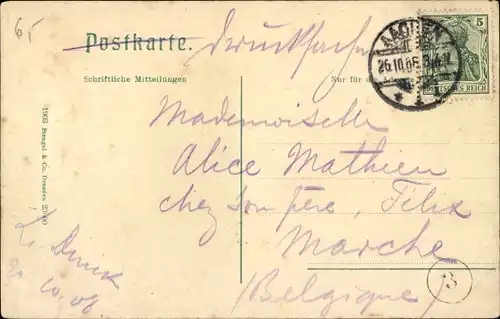 65
Postkarte. Drucksache
Schriftliche Mitteilungen
Nur für
AACHEN
26.10.06
5
DEUTSCHES REICH
1905 Stengel & Co., Dresden
Mademoiselle
Alice Mathien
chez son père, Félix
Marche
(Belgique)
3